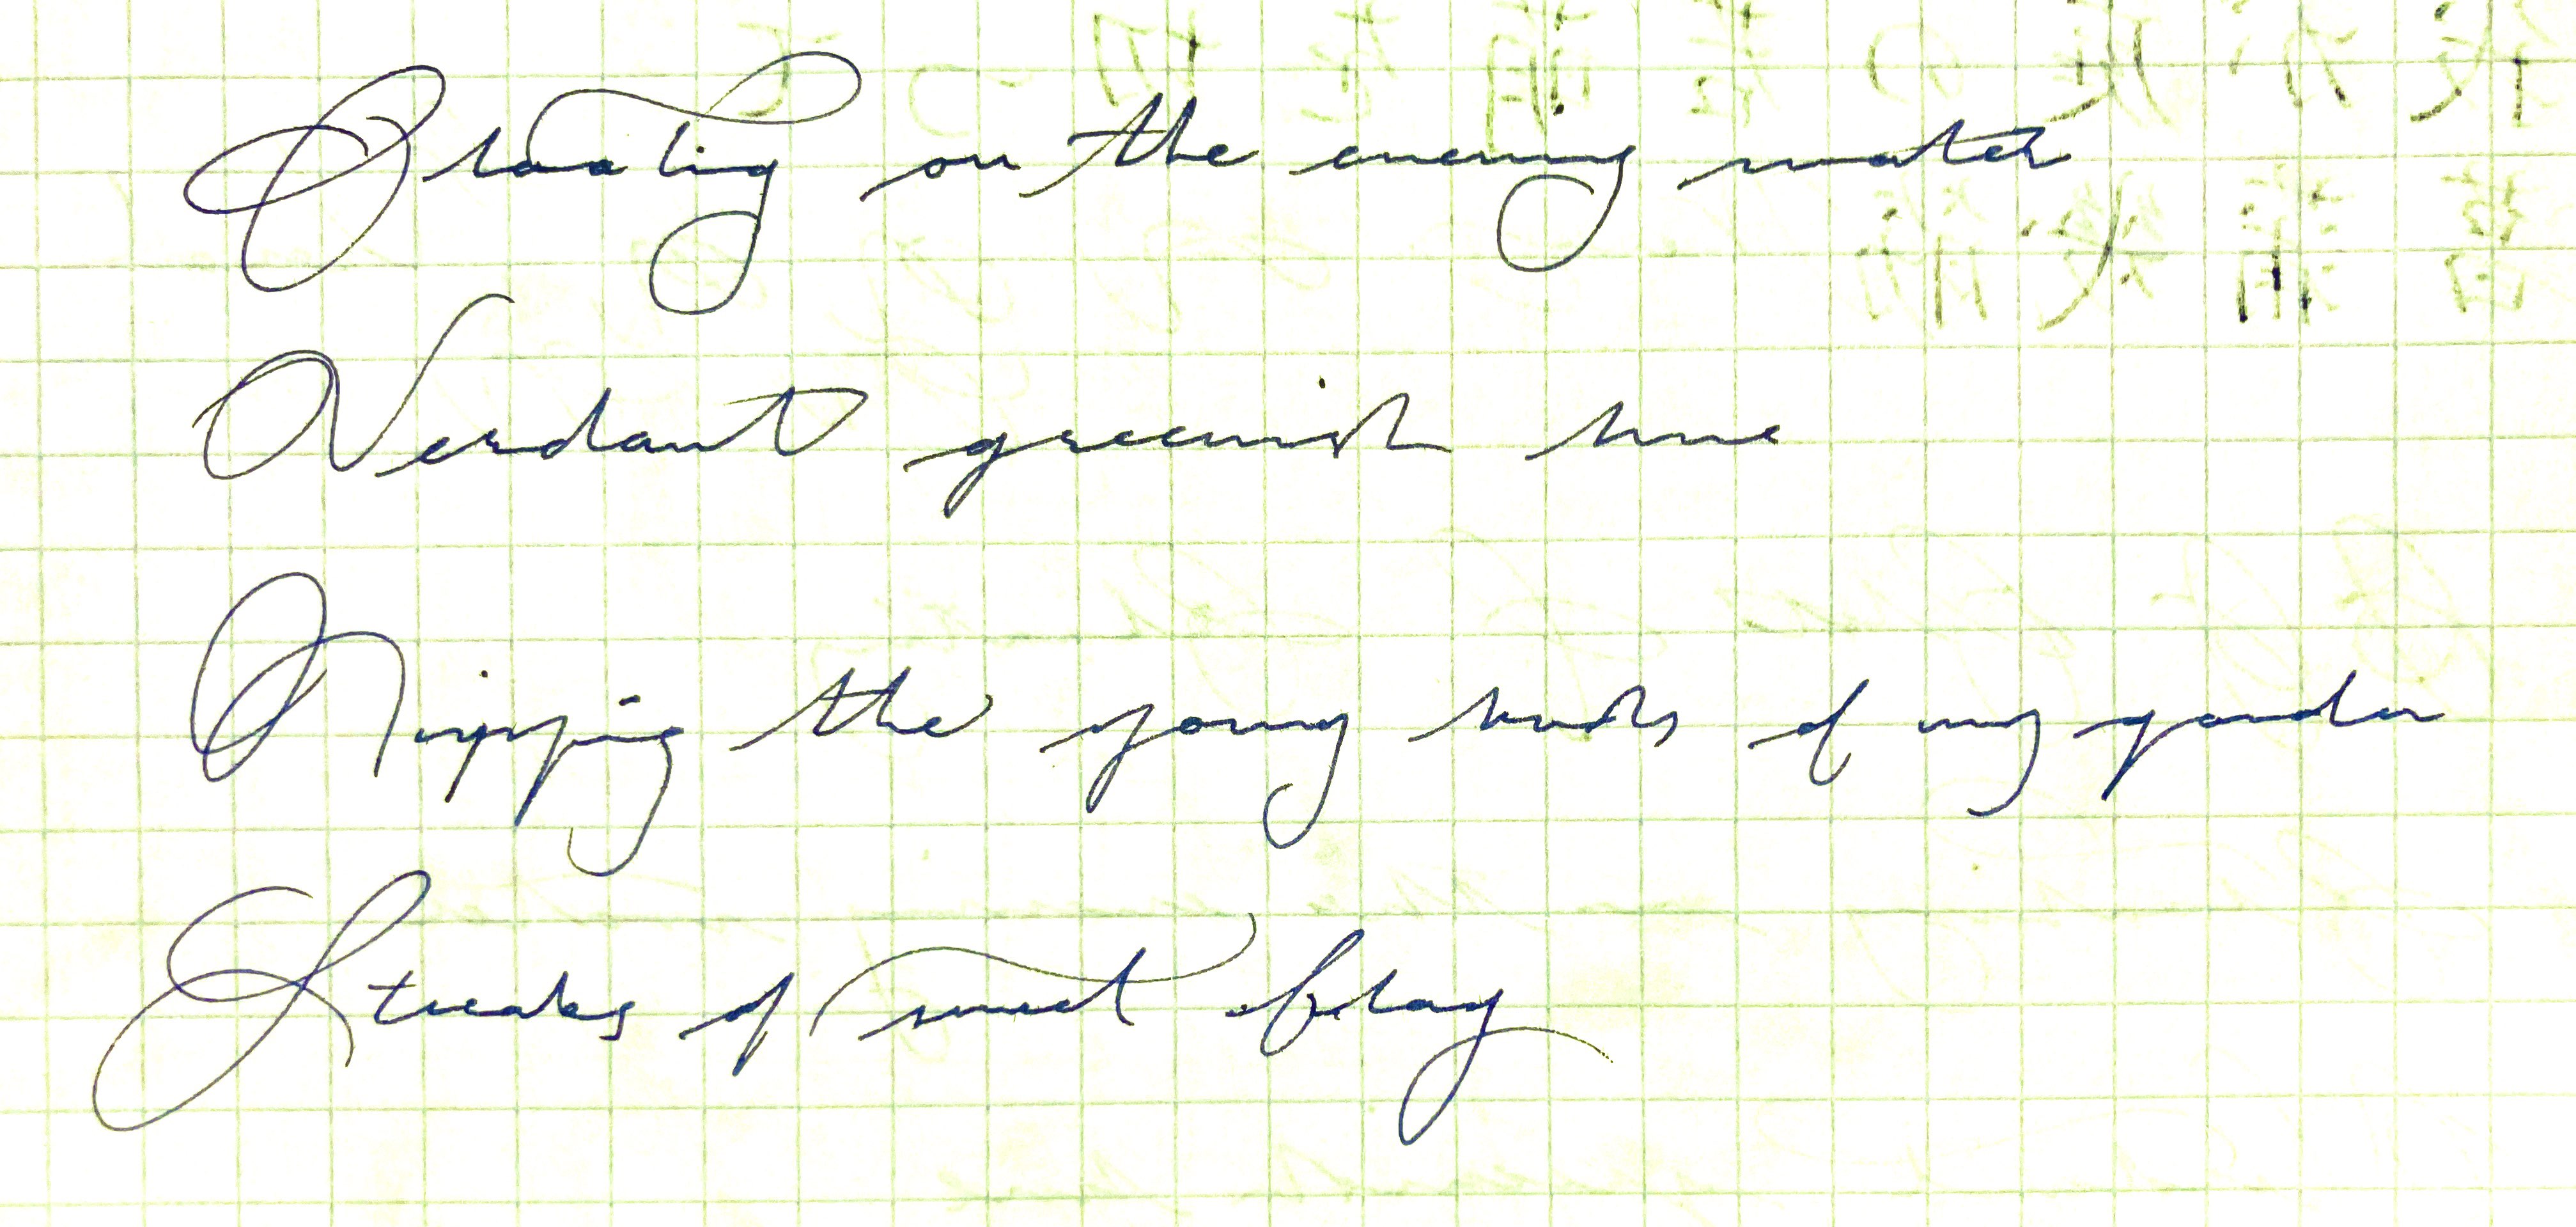 Floating on the evening water
Verdant greenish hue
Nipping the young buds of my garden
Streaks of sweet